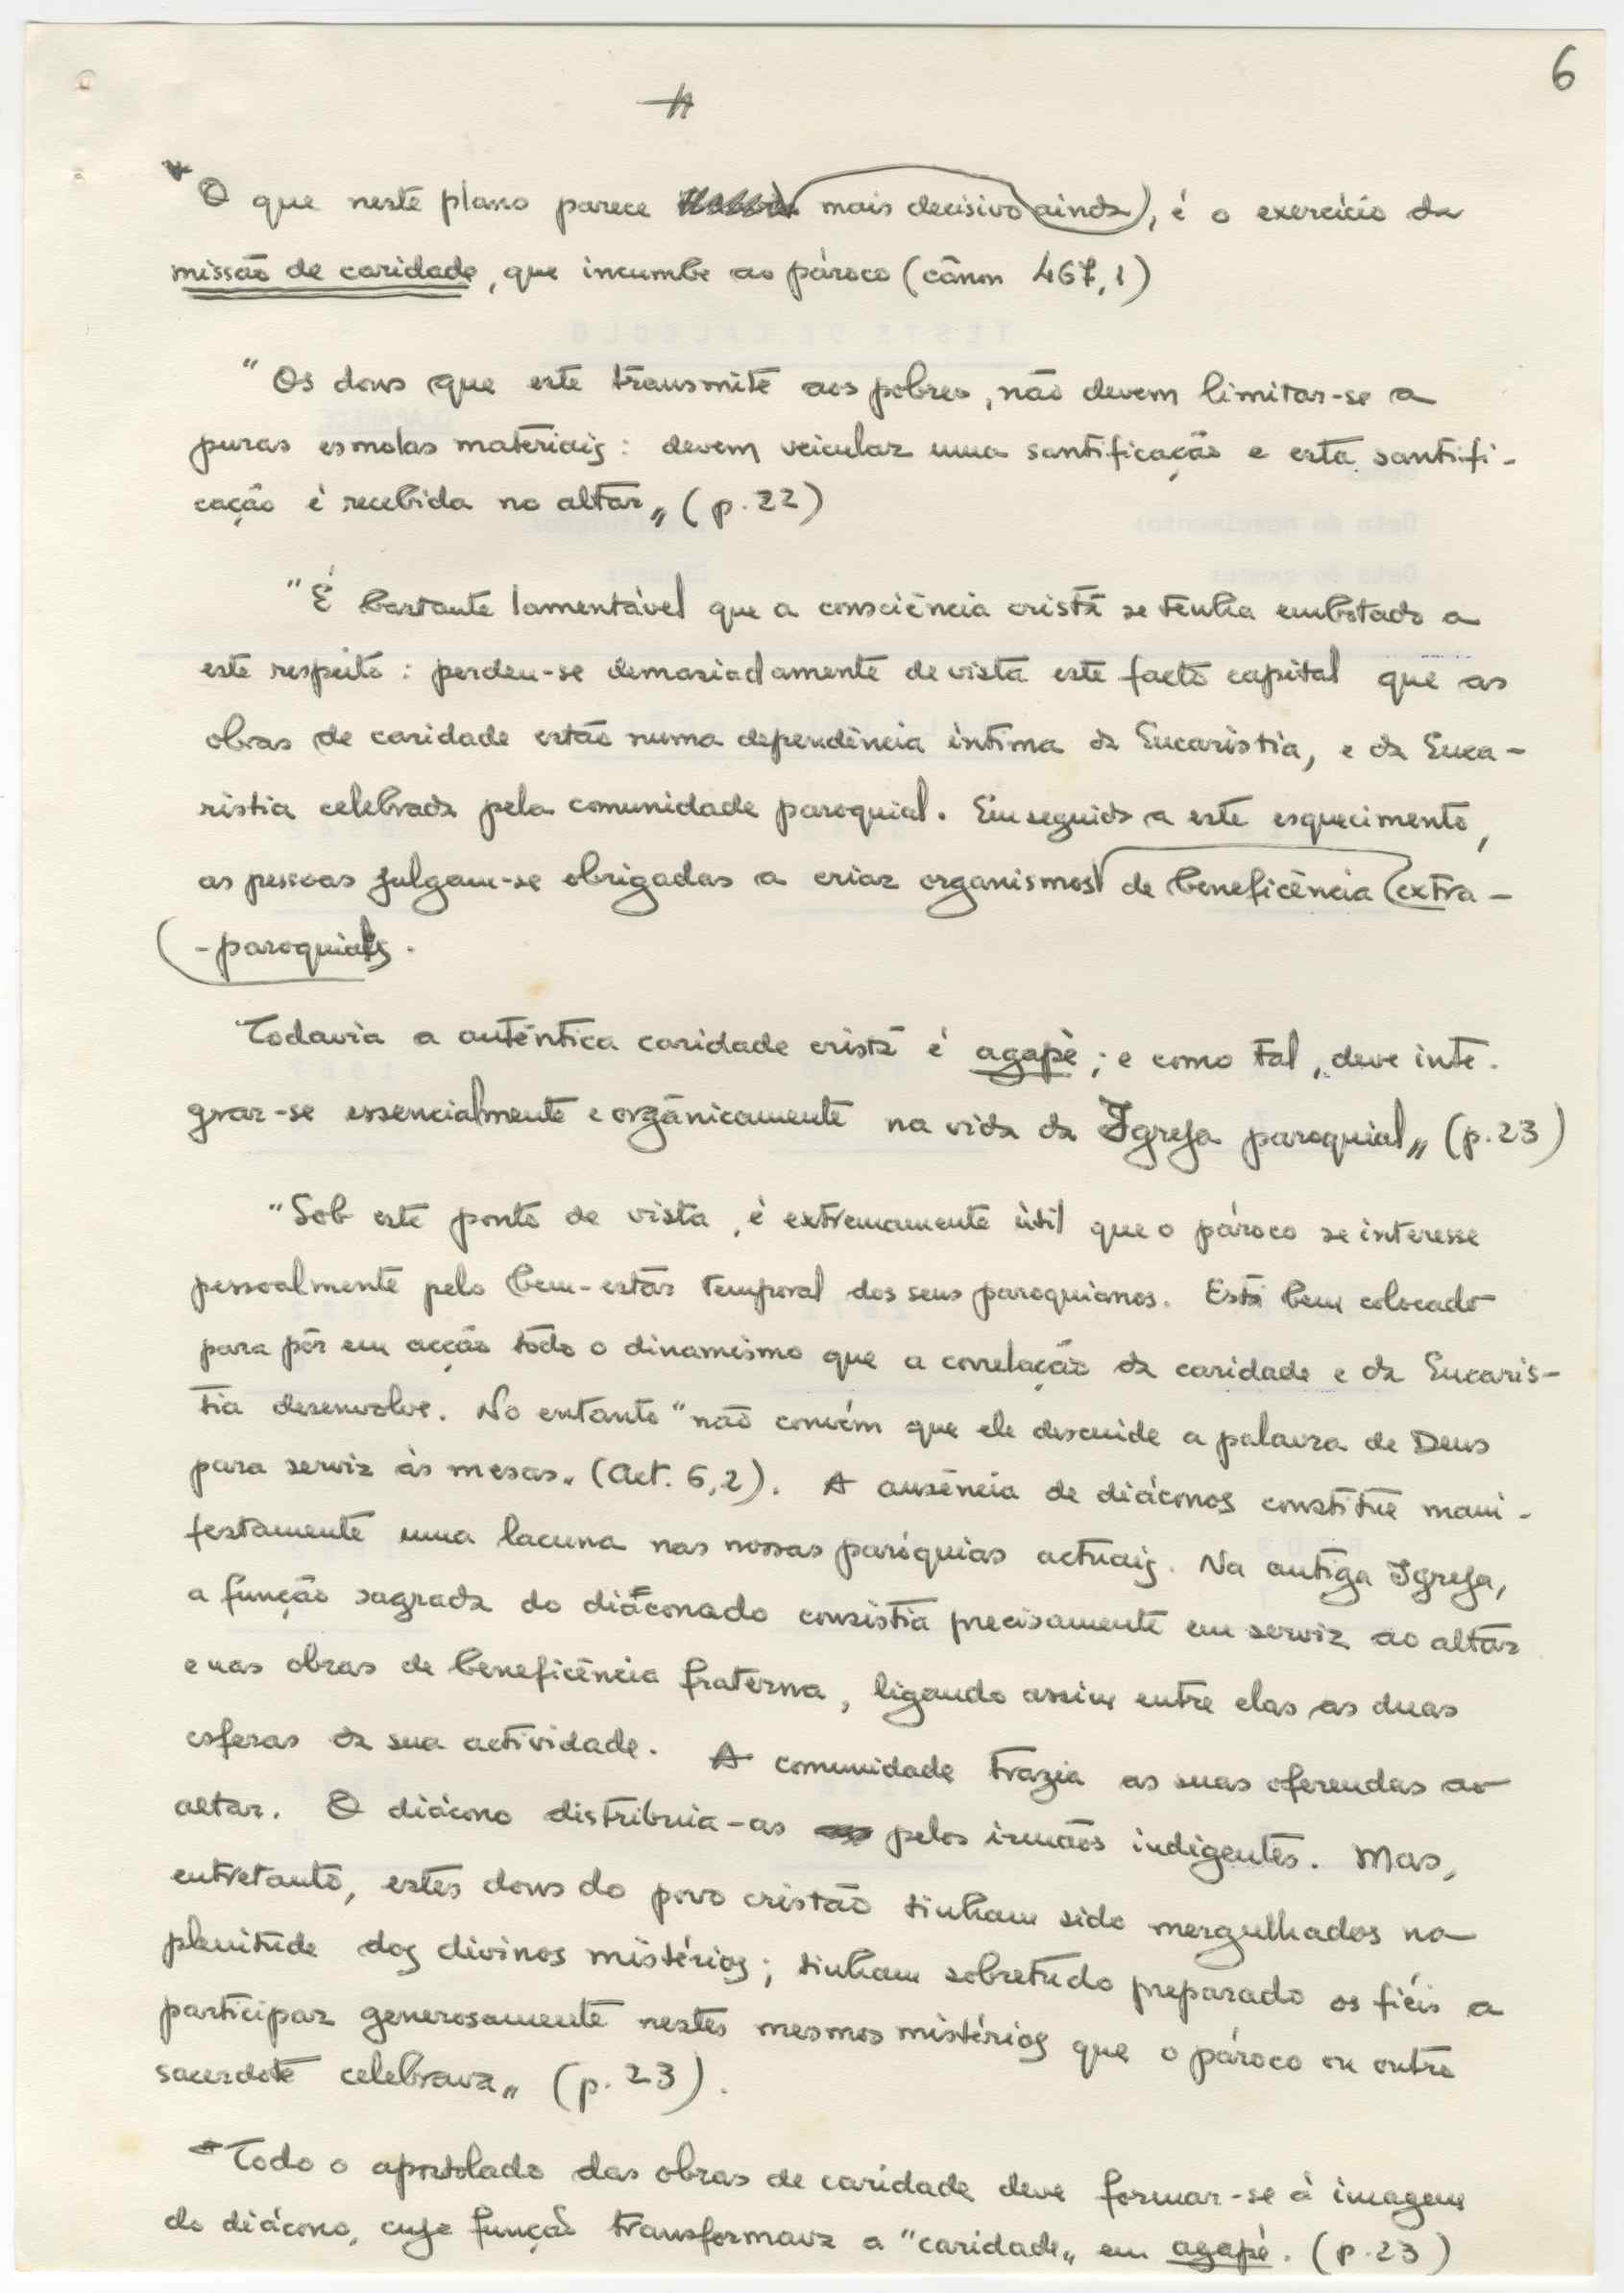 6
O que neste plano parece mais decisivo ainda), é o exercício da
missão de caridade, que incumbe ao pároco (cânon 467,1)
"Os dons que este transmite aos pobres, não devem limitar-se a
puras esmolas materiais: devem veicular uma santificação e esta santifi-
cação é recebida no altar" (p. 22)
"É bastante lamentável que a consciência cristã se tenha embotado a
este respeito: perdeu-se demasiadamente de vista este facto capital que as
obras de caridade estão numa dependência íntima da Eucaristia, e da Euca-
ristia celebrada pela comunidade paroquial. Em seguida a este esquecimento,
as pessoas julgam-se obrigadas a criar organismos de beneficência (extra-
-paroquiais.
Todavia a autêntica caridade cristã é agapè; e como tal, deve inte-
grar-se essencialmente e orgânicamente na vida da Igreja paroquial" (p. 23)
"Sob este ponto de vista, é extremamente útil que o pároco se interesse
pessoalmente pelo bem-estar temporal dos seus paroquianos. Está bem colocado
para pôr em acção todo o dinamismo que a correlação da caridade e da Eucaris-
tia desenvolve. No entanto "não convém que ele descuide a palavra de Deus
para servir às mesas" (Act. 6,2). A ausência de diáconos constitue mani-
festamente uma lacuna nas nossas paróquias actuais. Na antiga Igreja,
a função sagrada do diaconado consistia precisamente em servir ao altar
e nas obras de beneficência fraterna, ligando assim entre elas as duas
esferas da sua actividade. A comunidade trazia as suas oferendas ao
altar. O diácono distribuia-as pelos irmãos indigentes. Mas,
entretanto, estes dons do povo cristão tinham sido mergulhados na
plenitude dos divinos mistérios; tinham sobretudo preparado os fiéis a
participar generosamente nestes mesmos mistérios que o pároco ou outro
sacerdote celebrava" (p. 23).
Todo o apostolado das obras de caridade deve formar-se à imagem
do diácono, cuja função transformava a "caridade" em agapè. (p. 23)